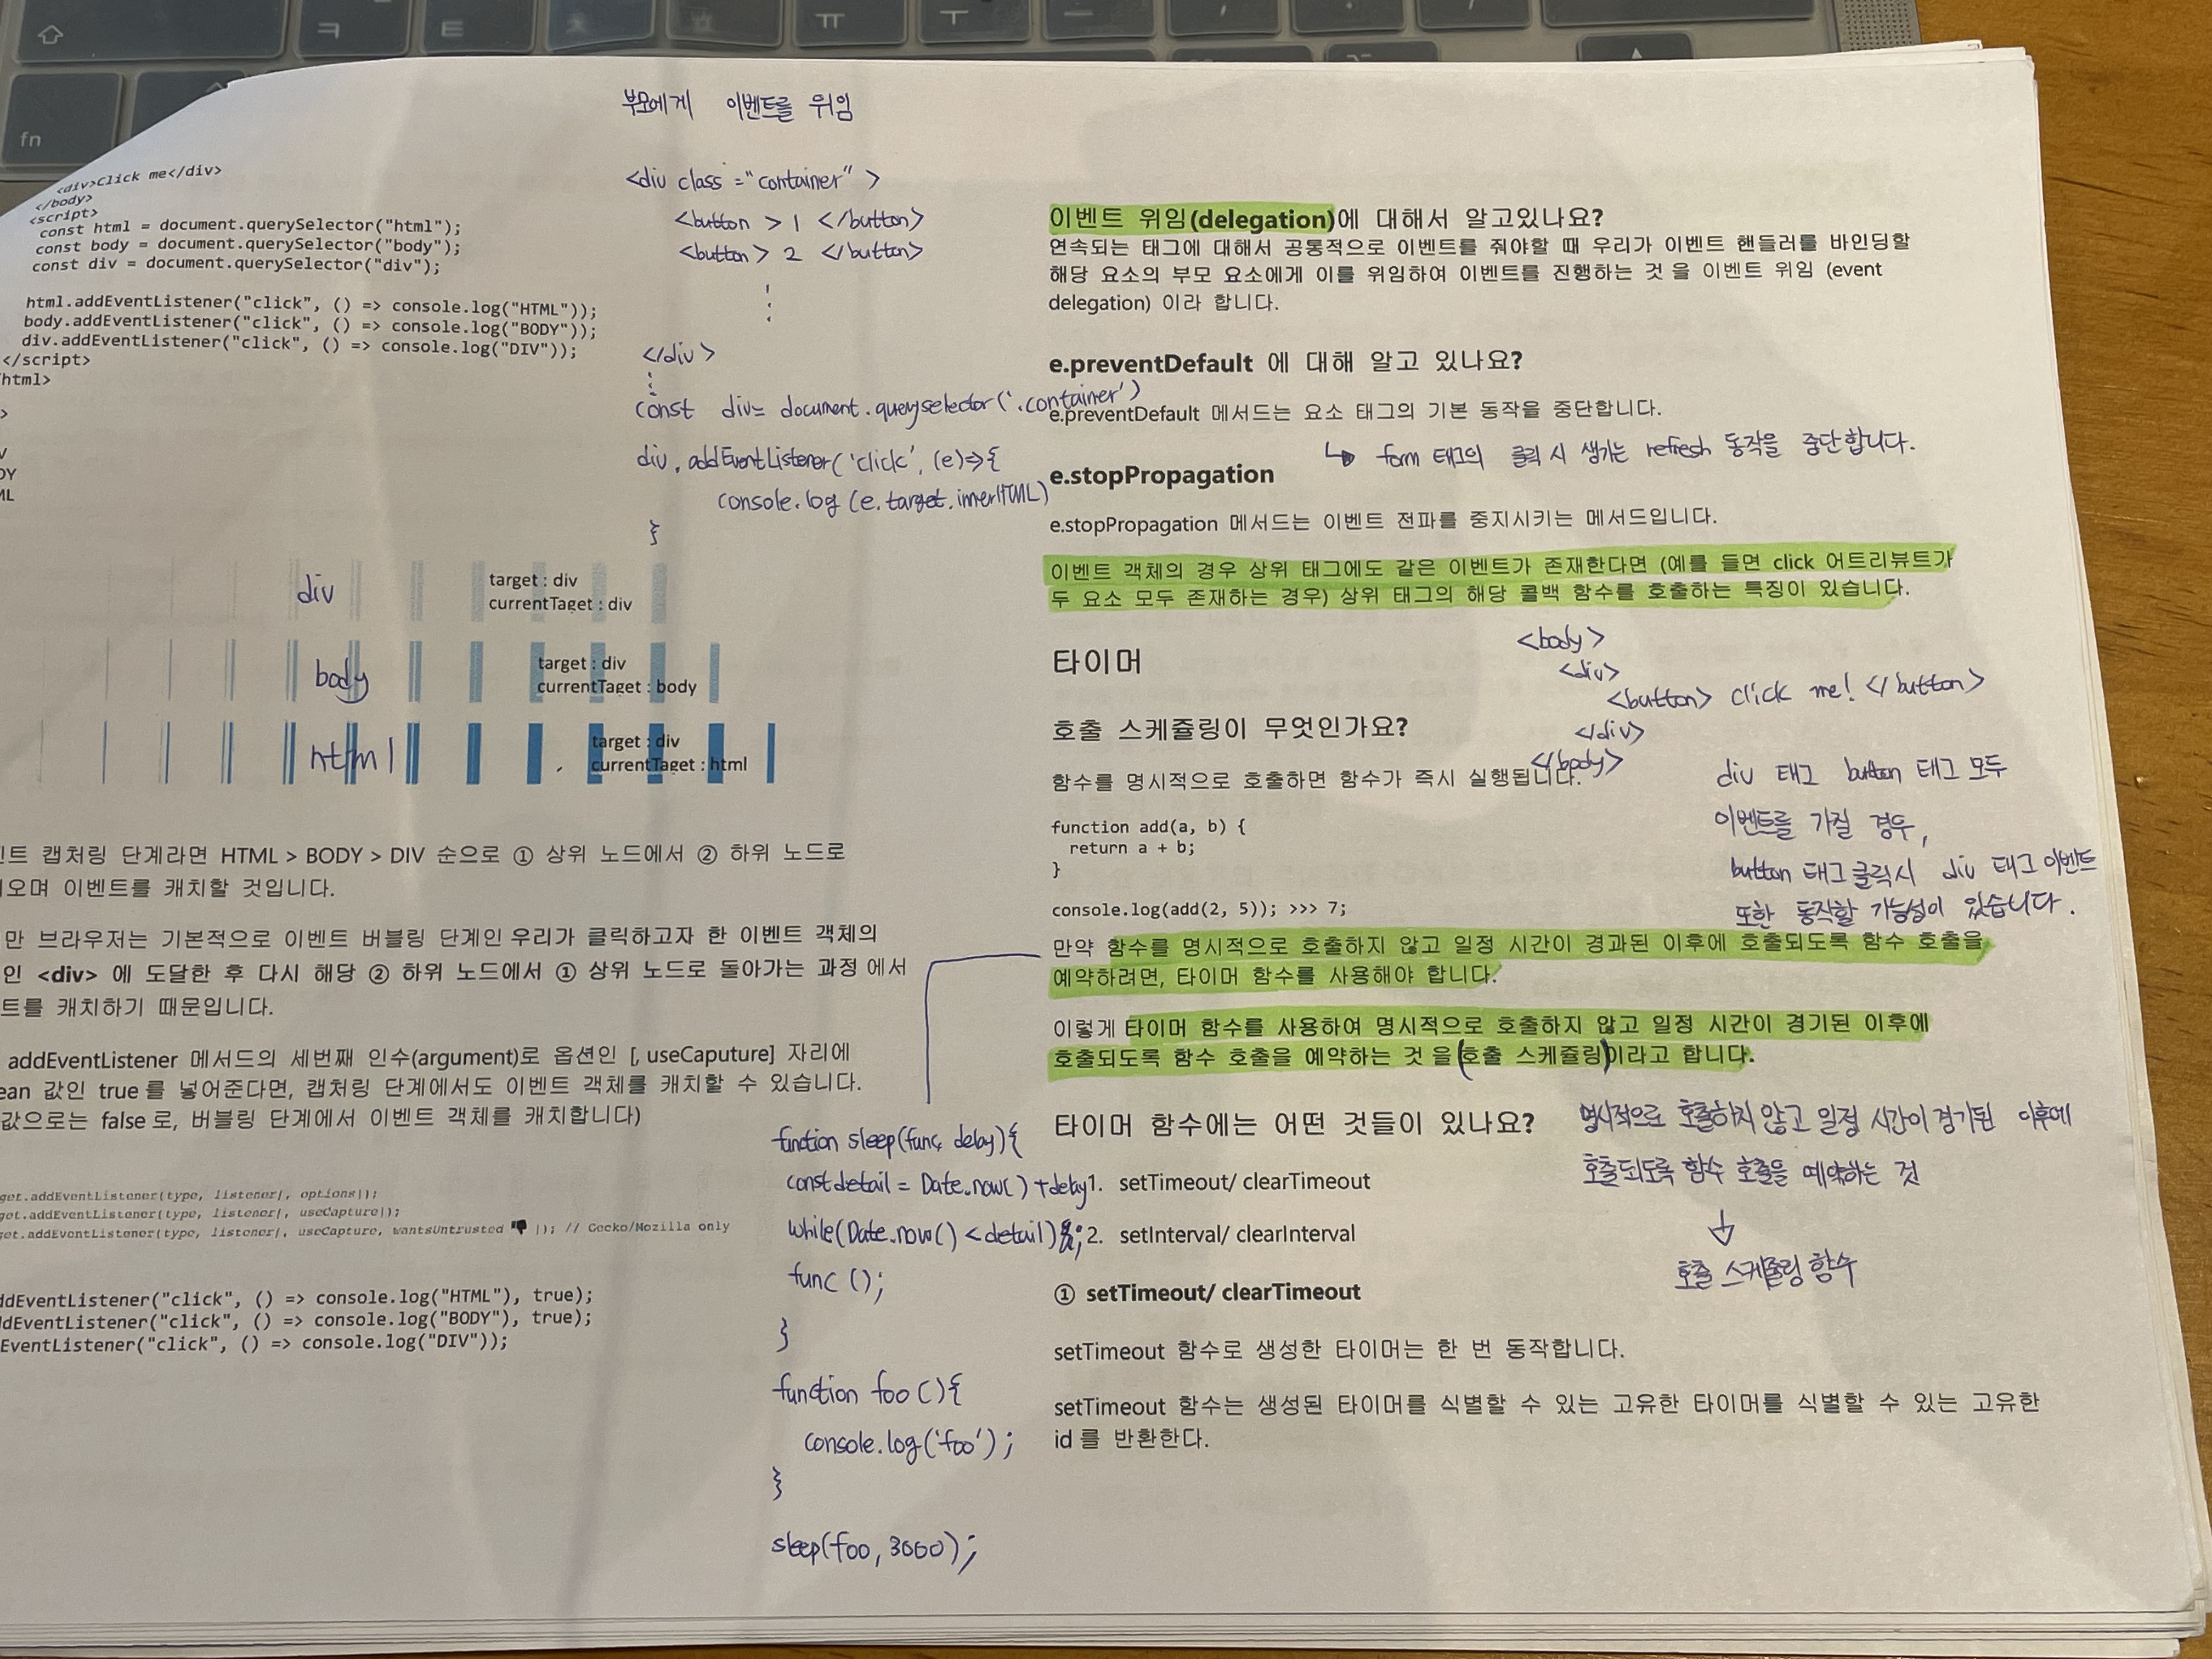 fn
ㅋ
ㅌ
ㅠ
ㅜ
ㅡ
부모에게 이벤트를 위임
<div>Click me</div>
</body>
<script>
const html = document.querySelector("html");
const body = document.querySelector("body");
const div = document.querySelector("div");
html.addEventListener("click", () => console.log("HTML"));
body.addEventListener("click", () => console.log("BODY"));
div.addEventListener("click", () => console.log("DIV"));
</script>
html>
>
V
DY
ML
<div class ="container" >
<button > 1 </button>
<button > 2 </button>
</div>
const div= document.queryselector('.container')
div.addEventListener('click', (e)=>{
console.log (e.target.innerHTML)
}
div
target : div
currentTaget : div
body
target : div
currentTaget : body
html
target : div
currentTaget : html
트 캡처링 단계라면 HTML > BODY > DIV 순으로 ① 상위 노드에서 ② 하위 노드로
오며 이벤트를 캐치할 것입니다.
만 브라우저는 기본적으로 이벤트 버블링 단계인 우리가 클릭하고자 한 이벤트 객체의
인 <div> 에 도달한 후 다시 해당 ② 하위 노드에서 ① 상위 노드로 돌아가는 과정 에서
트를 캐치하기 때문입니다.
addEventListener 메서드의 세번째 인수(argument)로 옵션인 [, useCaputure] 자리에
ean 값인 true 를 넣어준다면, 캡처링 단계에서도 이벤트 객체를 캐치할 수 있습니다.
값으로는 false 로, 버블링 단계에서 이벤트 객체를 캐치합니다)
get.addEventListener(type, listener[, options]);
get.addEventListener(type, listener[, useCapture]);
get.addEventListener(type, listener[, useCapture, wantsUntrusted 👎 ]); // Gecko/Mozilla only
ddEventListener("click", () => console.log("HTML"), true);
ddEventListener("click", () => console.log("BODY"), true);
EventListener("click", () => console.log("DIV"));
function sleep(func, delay){
const detail = Date.now() + delay
while(Date.now() < detail);
func ();
}
function foo (){
console.log('foo');
}
sleep(foo, 3000);
이벤트 위임(delegation)에 대해서 알고있나요?
연속되는 태그에 대해서 공통적으로 이벤트를 줘야할 때 우리가 이벤트 핸들러를 바인딩할
해당 요소의 부모 요소에게 이를 위임하여 이벤트를 진행하는 것 을 이벤트 위임 (event
delegation) 이라 합니다.
e.preventDefault 에 대해 알고 있나요?
e.preventDefault 메서드는 요소 태그의 기본 동작을 중단합니다.
↳ form 태그의 클릭 시 생기는 refresh 동작을 중단합니다.
e.stopPropagation
e.stopPropagation 메서드는 이벤트 전파를 중지시키는 메서드입니다.
이벤트 객체의 경우 상위 태그에도 같은 이벤트가 존재한다면 (예를 들면 click 어트리뷰트가
두 요소 모두 존재하는 경우) 상위 태그의 해당 콜백 함수를 호출하는 특징이 있습니다.
<body>
<div>
<button> click me! </button>
</div>
</body>
div 태그 button 태그 모두
이벤트를 가질 경우,
button 태그 클릭시 div 태그 이벤트
또한 동작할 가능성이 있습니다.
타이머
호출 스케쥴링이 무엇인가요?
함수를 명시적으로 호출하면 함수가 즉시 실행됩니다.
function add(a, b) {
return a + b;
}
console.log(add(2, 5)); >>> 7;
만약 함수를 명시적으로 호출하지 않고 일정 시간이 경과된 이후에 호출되도록 함수 호출을
예약하려면, 타이머 함수를 사용해야 합니다.
이렇게 타이머 함수를 사용하여 명시적으로 호출하지 않고 일정 시간이 경기된 이후에
호출되도록 함수 호출을 예약하는 것 을(호출 스케쥴링)이라고 합니다.
타이머 함수에는 어떤 것들이 있나요?
명시적으로 호출하지 않고 일정 시간이 경기된 이후에
호출되도록 함수 호출을 예약하는 것
↓
호출 스케쥴링 함수
1. setTimeout/ clearTimeout
2. setInterval/ clearInterval
① setTimeout/ clearTimeout
setTimeout 함수로 생성한 타이머는 한 번 동작합니다.
setTimeout 함수는 생성된 타이머를 식별할 수 있는 고유한 타이머를 식별할 수 있는 고유한
id 를 반환한다.